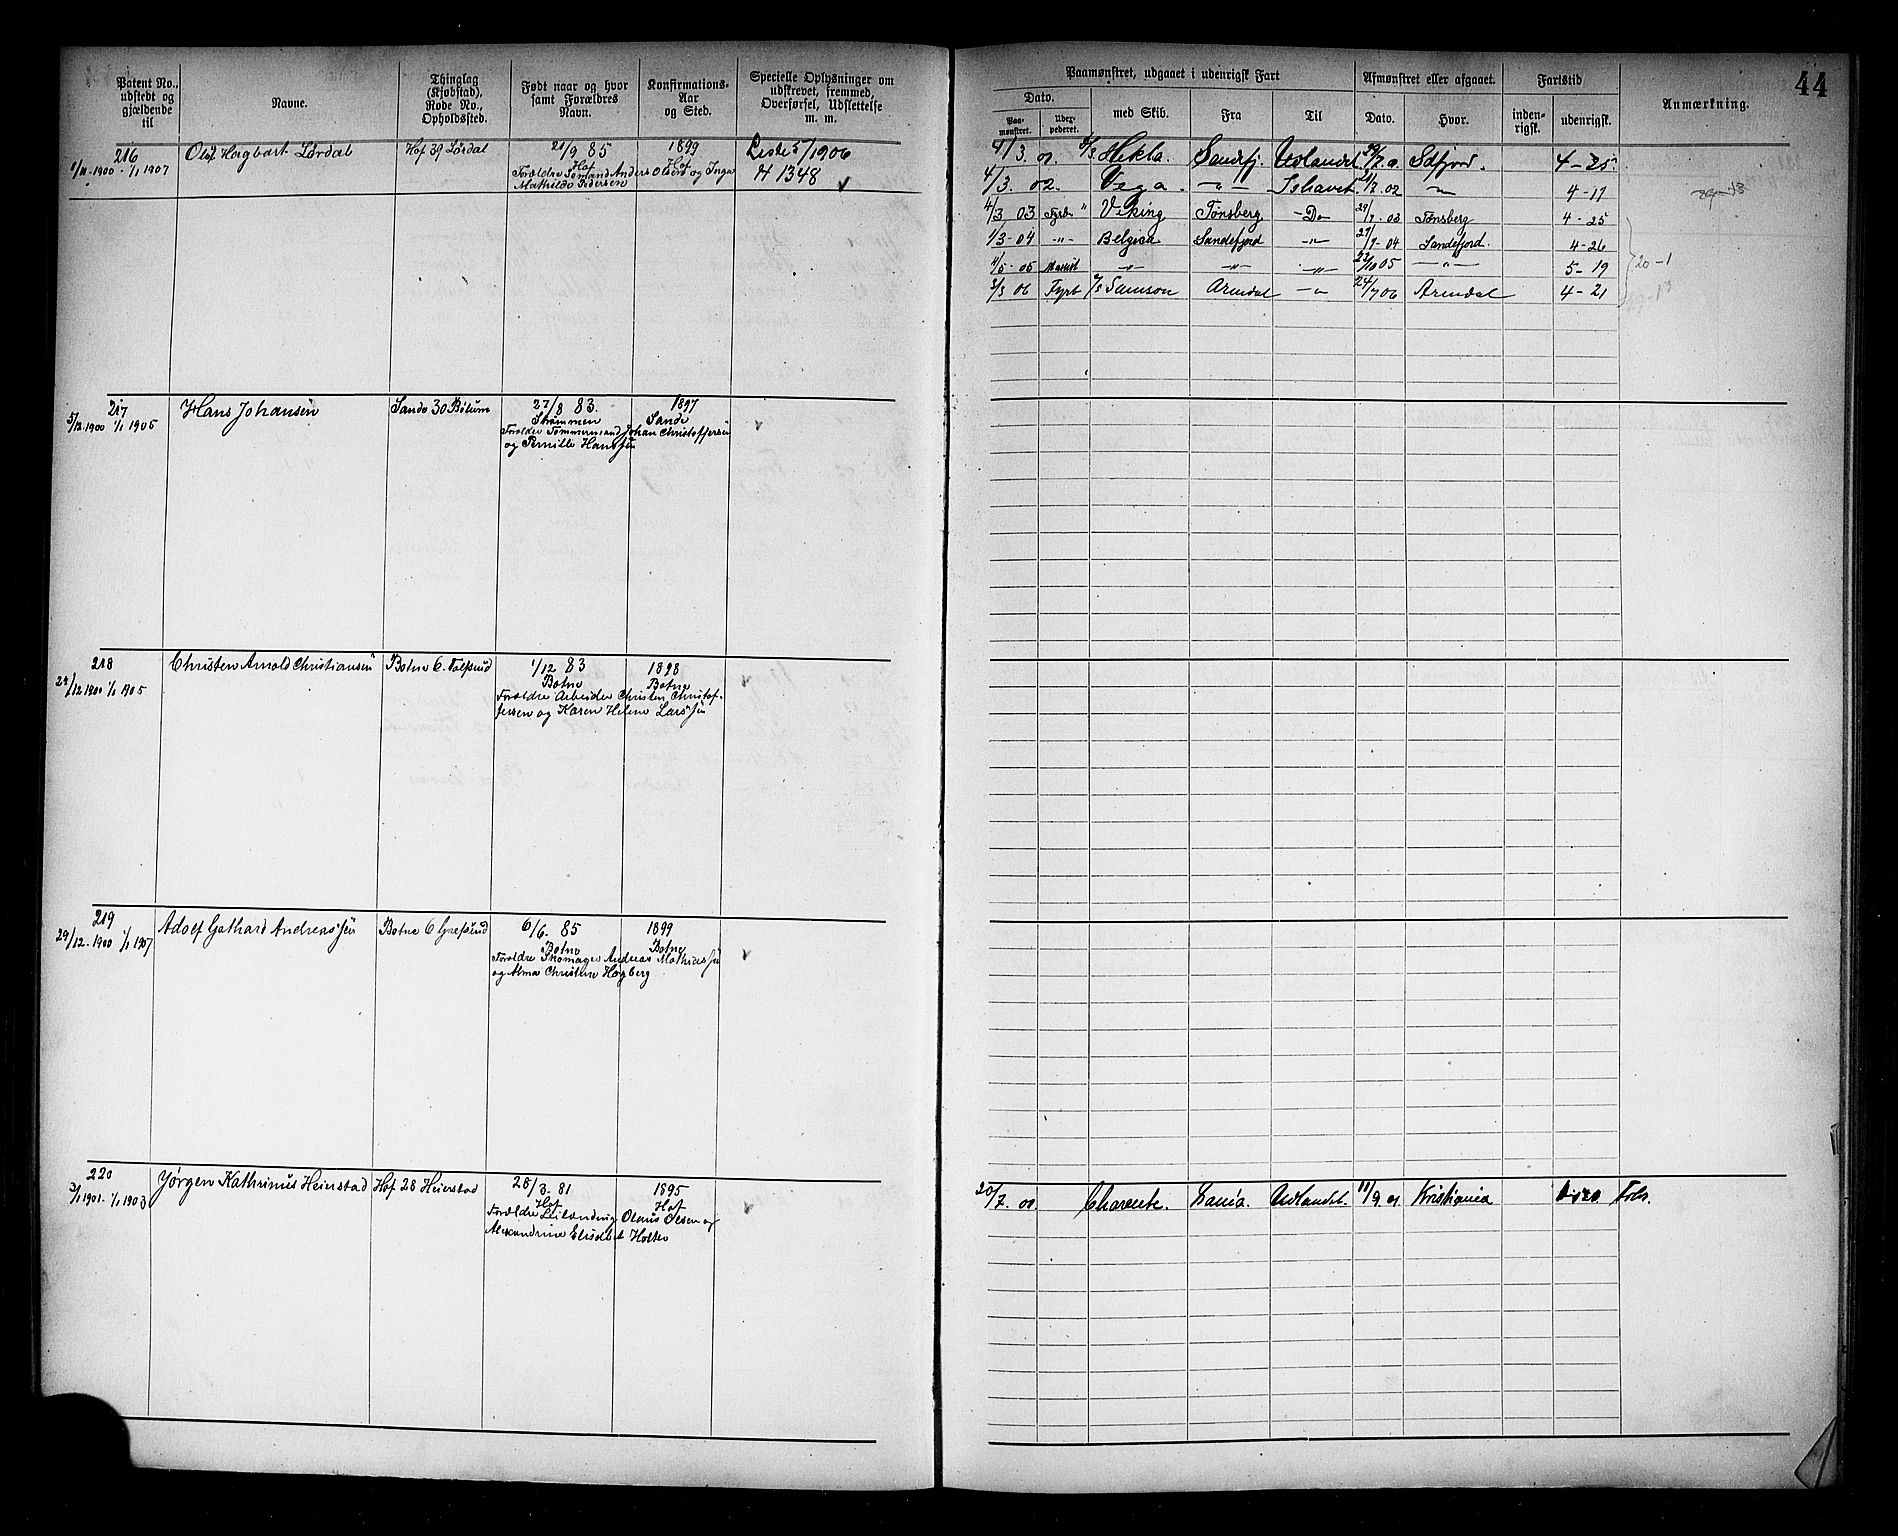 Patent No., udstedt og gjældende til
Navne.
Thinglag (Kjøbstad), Rode No., Opholdssted.
Født naar og hvor samt Forældres Navn.
Konfirmations-Aar og Sted.
Specielle Oplysninger om udskrevet, fremmed, Overførsel, Udslettelse m. m.
216
/11-1900 - 1/1 1907
Olaf Hagbart Lørdal
Hof 39 Lørdal
21/9 85
Hof
1899
Hof
Forældre Sømand Anders Olsen og Inga
Mathilde Pedersen
Liste 5/1906
№ 1348
217
5/12 1900 1/1 1905
Hans Johansen
Sande 30 Bølum
27/8 83.
Strømmen
1897
Sande
Forældre Tømmermand Johan Christoffersen
og Pernille Hansen
218
29/12 1900 1/1 1905
Christen Arnold Christiansen
Botne 6.
1/12 83
Botne
1898
Botne
Forældre Arbeider Christen Christof-
fersen og Karen Helene Larsen
219
29/12-1900 1/1 1907
Adolf Gothard Andreassen
Botne 6 Grefsrud
6/6. 85
Botne
1899
Botne
Forældre Skomager Andreas Mathiassen
og Alma Christin Høgberg
220
3/1 1901. 1/1 1903
Jørgen Kathrinus Heierstad
Hof 28 Heierstad
28/3. 81
Hof
1895
Hof
Forældre Leilænding Olaus Olsen og
Alexandrine Elisabet Holter
44
Paamønstret, udgaaet i udenrigsk Fart
Afmønstret eller afgaaet.
Fartstid
Anmærkning.
Dato.
Paa-mønstret.
med Skib.
Fra
Til
Dato.
Hvor.
inden-rigsk.
udenrigsk.
4/3. 01. Hekla. Sandefj. Udlandet Sdfjord. 4-25.
4/3. 02. Vega. -"- Ishavet. 02 -"- 4-17
4/3 03 Fyrb. Viking Tønsberg -Do- 29/7-03 Tønsberg 4-25
1/3-04 -"- Belgica Sandefjord -"- 27/7-04 Sandefjord. 4-26
/5-05 -"- -"- -"- 22/10 05 -"- 5-19
20-1
3/3 06 Fyrb Samson Arendal -"- 24/7 06 Arendal 4-21
20/7. 01. Charente. Udlandet. 11/9. 01 Kristiania